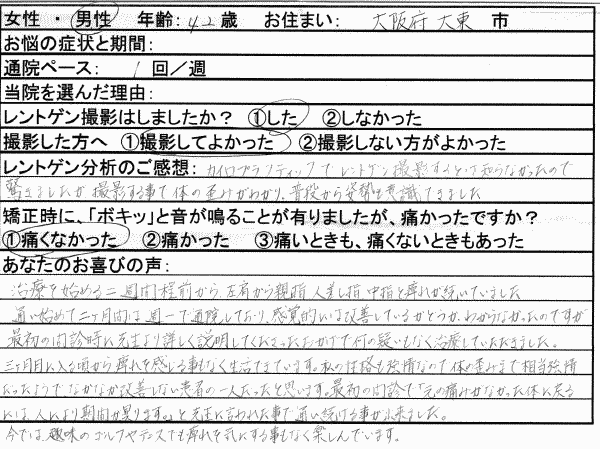 女性 ・ 男性 年齢: 42歳 お住まい: 大阪府 大東 市
お悩の症状と期間:
通院ペース: 1 回／週
当院を選んだ理由:
レントゲン撮影はしましたか？ ①した ②しなかった
撮影した方へ ①撮影してよかった ②撮影しない方がよかった
レントゲン分析のご感想: カイロプラクティックでレントゲン撮影するとは知らなかったので
驚きましたが撮影する事で体の歪みがわかり、普段から姿勢を意識できました
矯正時に、「ボキッ」と音が鳴ることが有りましたが、痛かったですか？
①痛くなかった ②痛かった ③痛いときも、痛くないときもあった
あなたのお喜びの声:
治療を始める二週間程前から左肩から親指、人差し指、中指と痺れが続いていました
通い始めて二ヶ月間は週一で通院しており、感覚的には改善しているかどうか、わからなかったのですが
最初の問診時に先生より詳しく説明してくださったおかげで何の疑いもなく治療していただきました。
三ヶ月目に入る頃から痺れを感じる事もなく生活できています。私の性格も強情なので体の歪みまで相当強情
だったようでなかなか改善しない患者の一人だったと思います。最初の問診で「元の痛みがなかった体に戻る
には、人により期間が異ります。」と先生に言われた事で通い続ける事が出来ました。
今では、趣味のゴルフやテニスでも痺れを気にする事もなく楽しんでいます。